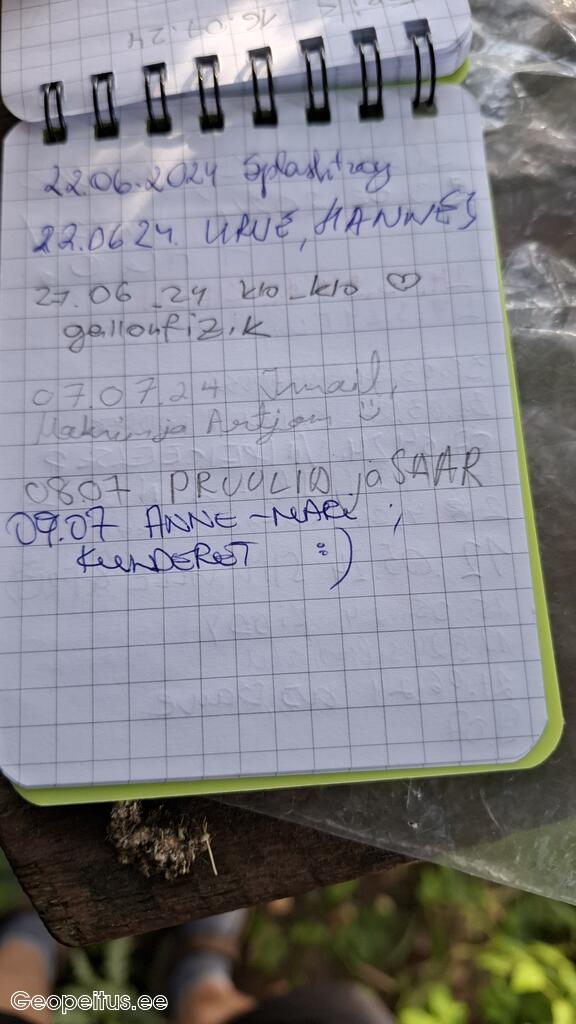 16.07.24
22.06.2024 Splashtray
22.06 24. URVE, HANNES
27.06 .24 kio-kio ♡
gallonfizik
07 07.24 Ismail,
ja Artjom
08.07 PRUULID ja SAAR
09.07 ANNE-MARI
KUNDEROT :)
Geopeitus.ee